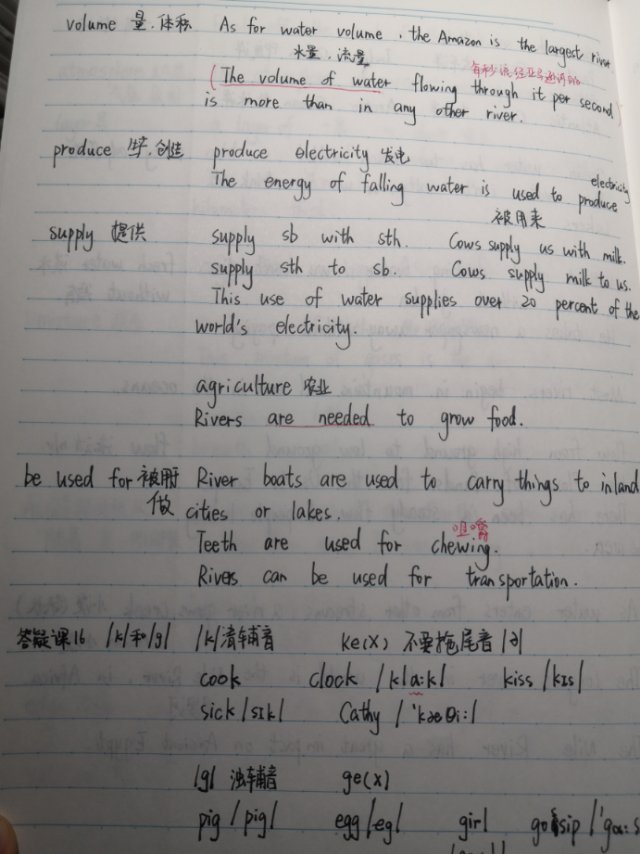 volume 量.体积 As for water volume, the Amazon is the largest river
水量.流量
(The volume of water flowing through it per second)
is more than in any other river.
produce 生产.创造 produce electricity 发电
The energy of falling water is used to produce electricity
被用来
supply 提供 supply sb with sth. Cows supply us with milk.
supply sth to sb. Cows supply milk to us.
This use of water supplies over 20 percent of the
world's electricity.
agriculture 农业
Rivers are needed to grow food.
be used for 被用 River boats are used to carry things to inland
做 cities or lakes.
咀嚼
Teeth are used for chewing.
Rivers can be used for transportation.
答疑课16 /k/和/g/ /k/清辅音 ke(X) 不要拖尾音
cook clock /kla:k/ kiss /kɪs/
sick /sɪk/ Cathy /'kæθi:/
/g/ 浊辅音 ge(X)
pig /pig/ egg /eg/ girl gossip /'ga:s